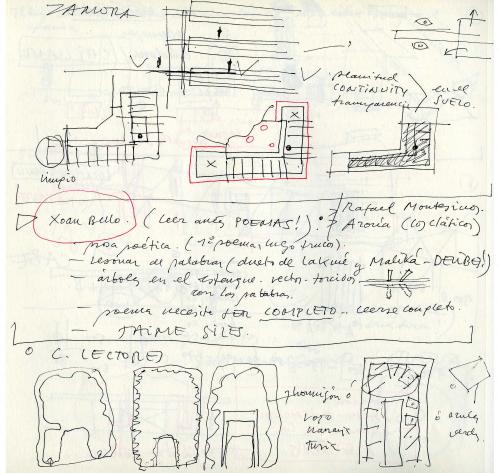 ZAMORA
planitud
CONTINUITY
transparencia
en el
SUELO.
limpio
Xoan Bello. (Leer antes POEMAS!).
Rafael Montesinos.
Azorín (Los clásicos)
- prosa poética. (1º poemas luego trucos).
- resonar de palabras (dueto de Lakmé y Malika - DELIBES!)
- árboles en el estanque. rectos - torcidos
con las palabras.
- poema necesita SER COMPLETO - leerse completo.
- JAIME SILES.
C. LECTORES
hormigón ó
rojo
naranja
ó azules
verdes.